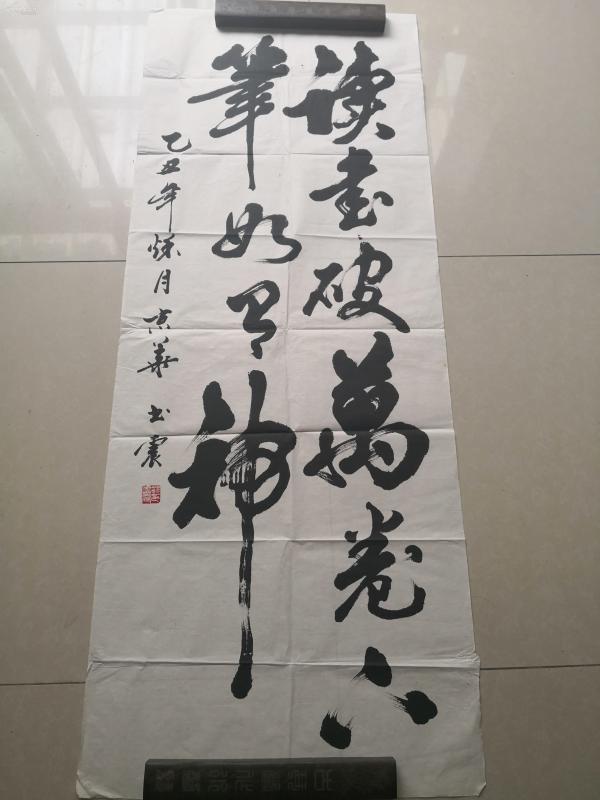 读書破萬卷下
筆如有神
乙丑年秋月京華 震